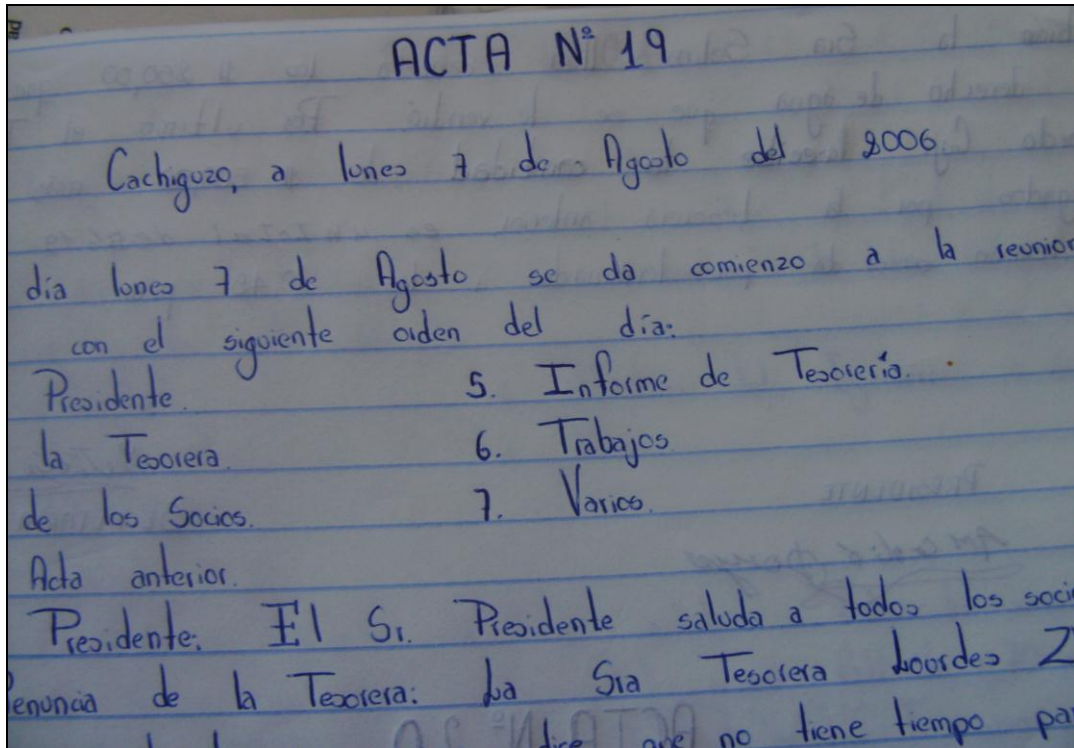 ACTA Nº 19
Cachiguzo, a lunes 7 de Agosto del 2006
día lunes 7 de Agosto se da comienzo a la reunion
con el siguiente orden del día:
Presidente. 5. Informe de Tesorería.
la Tesorera. 6. Trabajos.
de los Socios. 7. Varios.
Acta anterior.
Presidente: El Sr. Presidente saluda a todos los soci
enuncia de la Tesorera: La Sra Tesorera Lourdes Z
dice que no tiene tiempo par